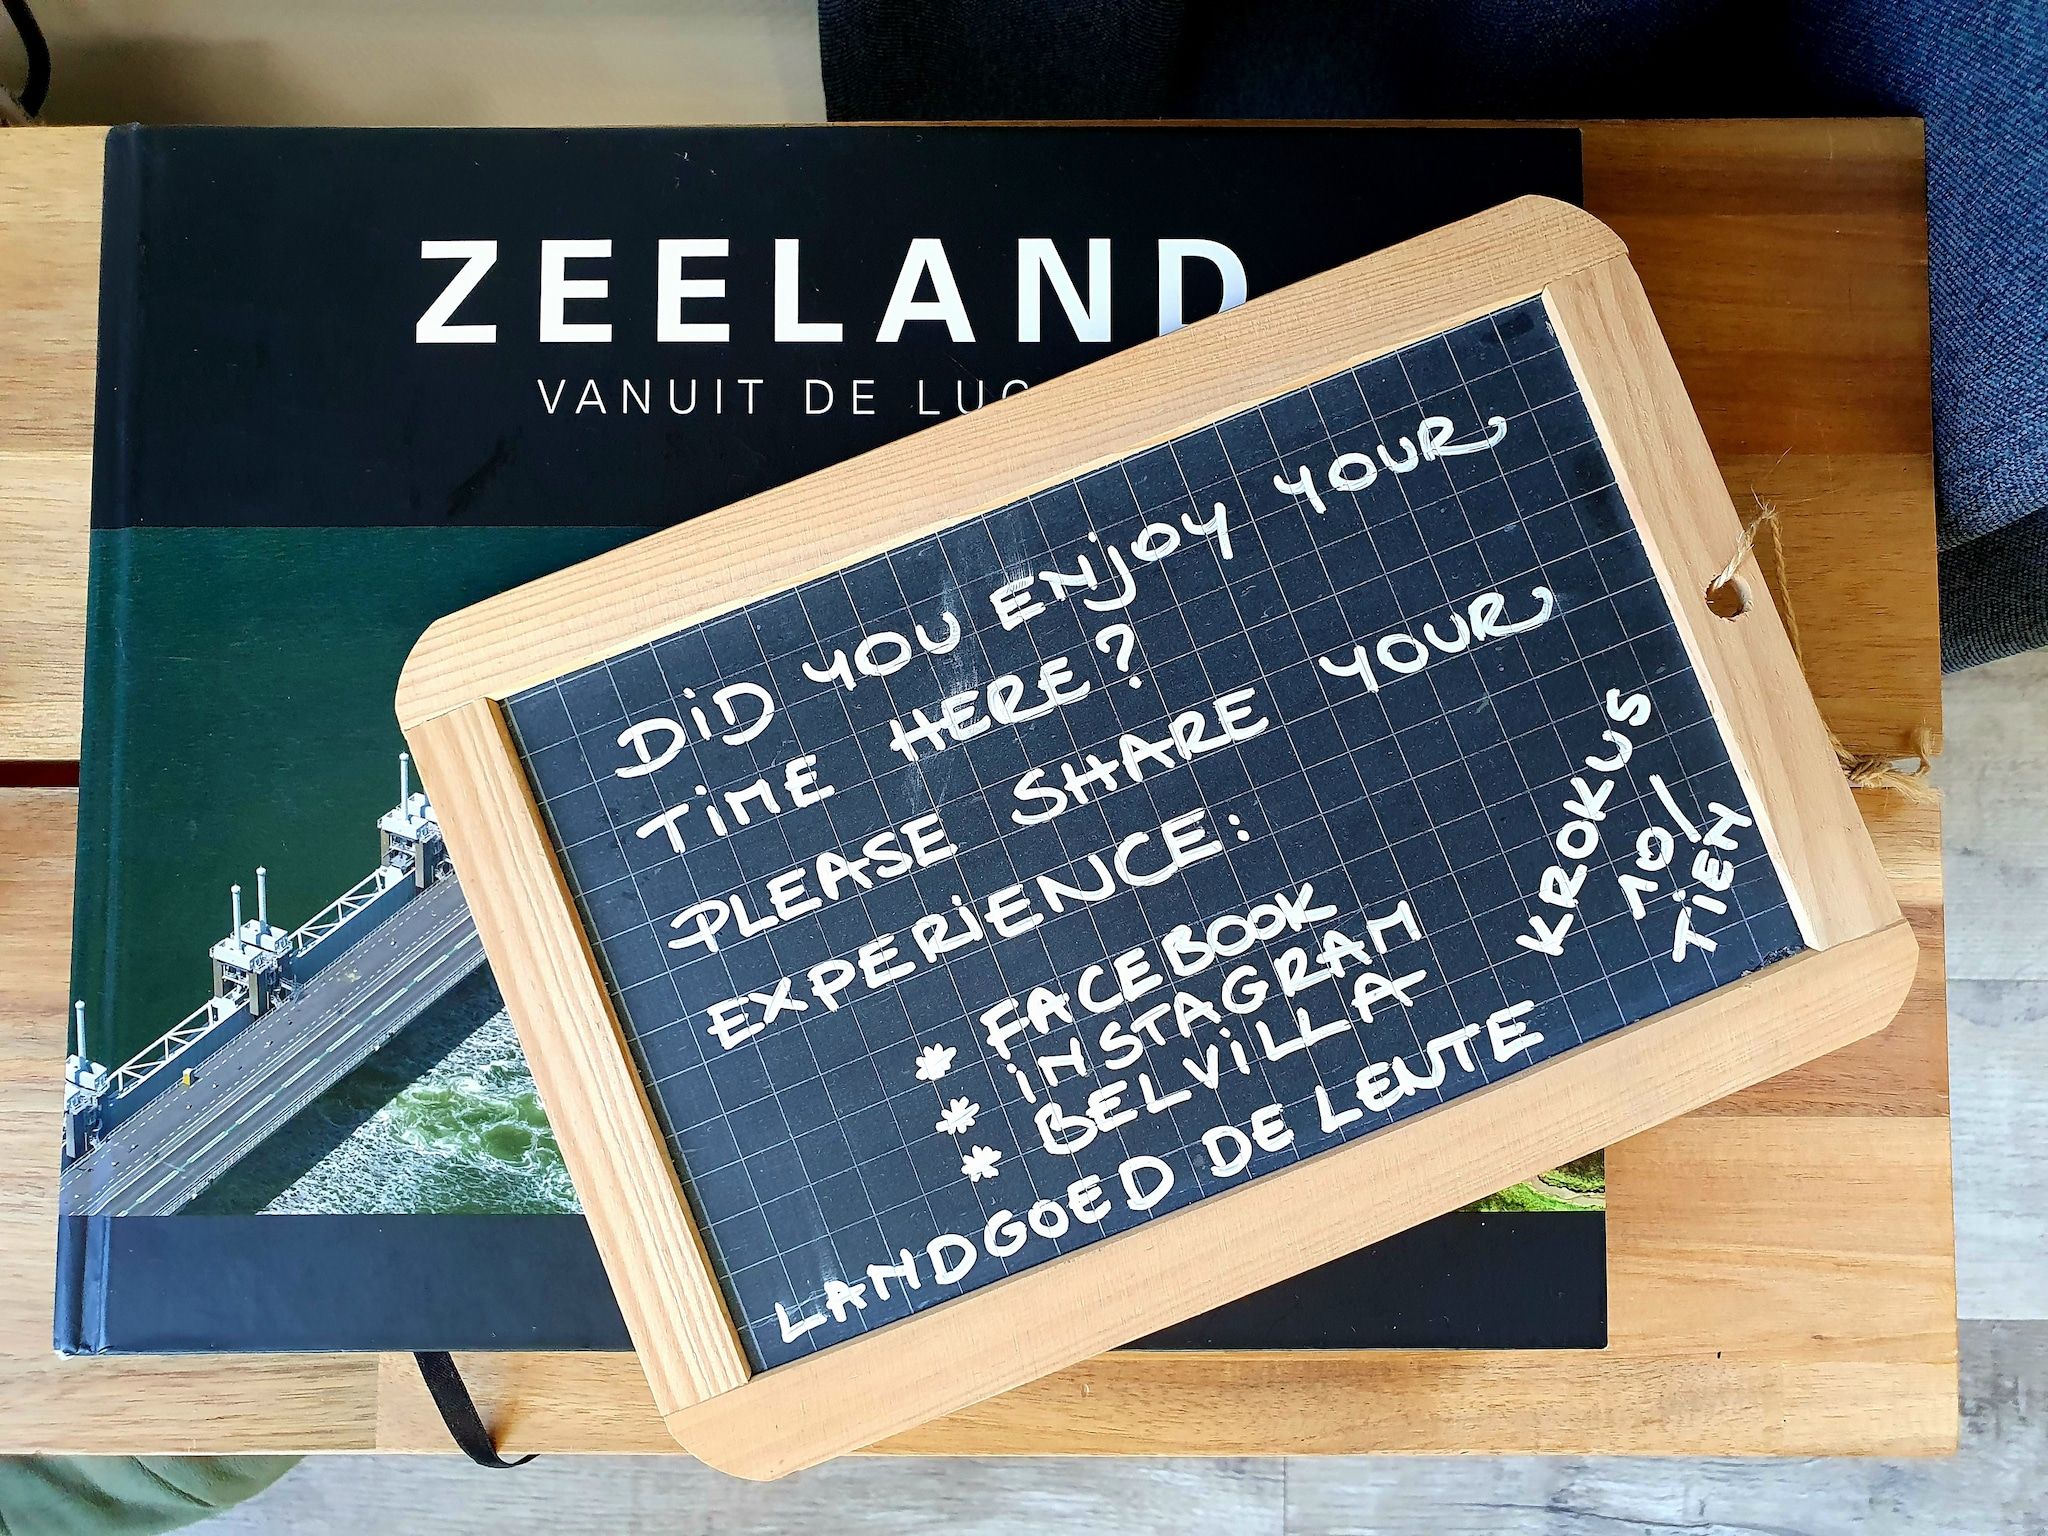 ZEELAND
VANUIT DE
DiD YOU ENjOY YOUR
TiME HERE?
PLEASE SHARE YOUR
EXPERiENCE:
* FACEBOOK
* iNSTAGRAM
* BELViLLA
LANDGOED DE LEUTE
KROKUS
10/
TiEN